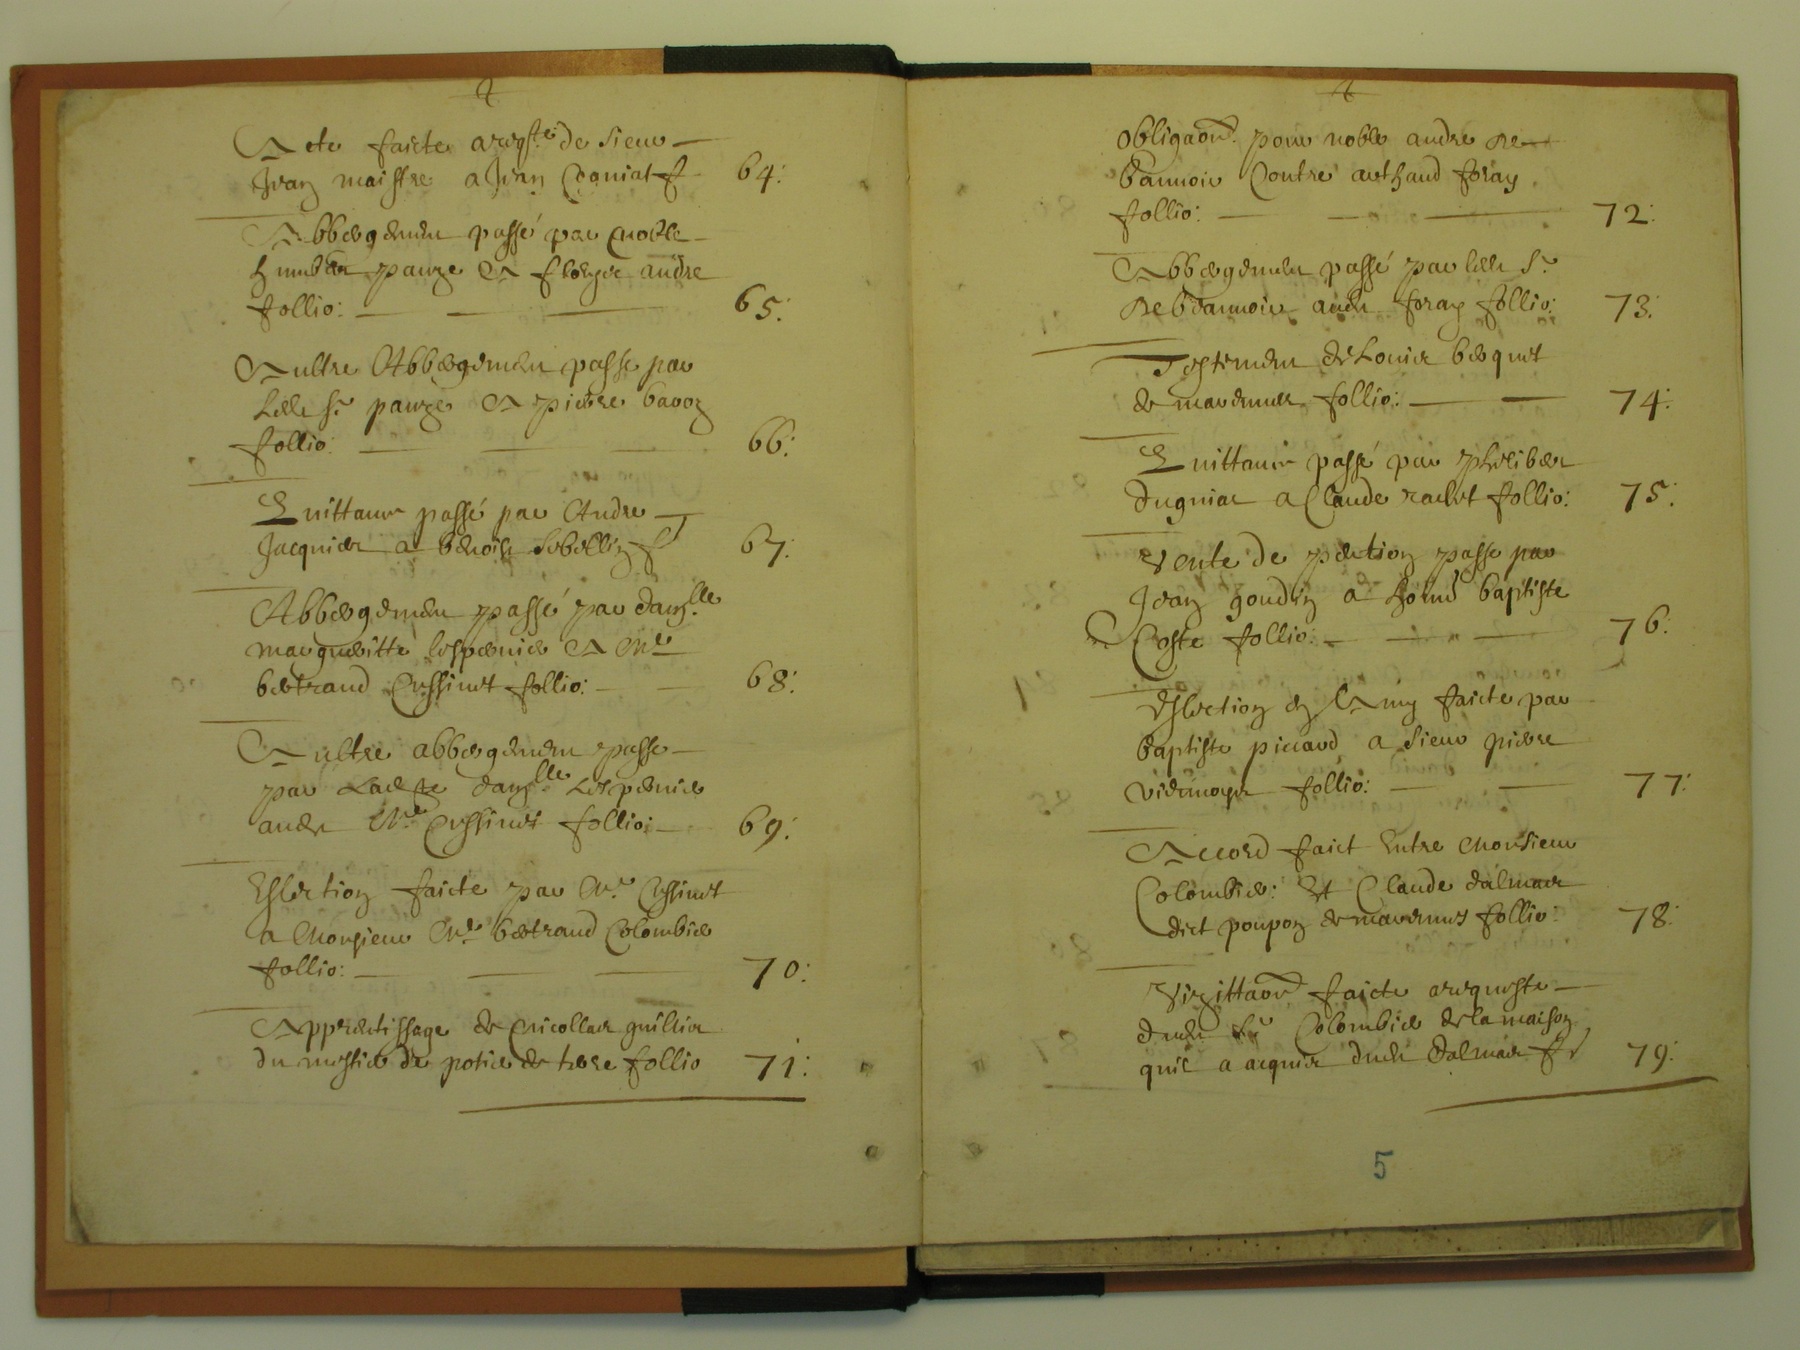 Acte faicte a reqste de sieur
Jean maistre a Jean Coniat f
64:
Abbergement passé par noble
humbert parize A fleurye andre
follio: 65:
Aultre Abbergement passe par
Led Sr parize A pierre baron
follio: 66:
Quittance passé par Andre
Jacquier a benoist sebellin f 67:
Abbergement passé par damlle
margueritte lespervier A Me
bertrand Cussinet follio: 68:
Aultre abbergement passe
par Ladte damlle Lespervier
aud Me Cussinet follio: 69:
Eslection faicte par Me Cussinet
a Monsieur Me bertrand Colombier
follio: 70:
Apprentissage de nicollas
du mestier de potier de terre follio 71:
Obligaon pour noble andre De
bannoir Contre arthaud foray
follio: 72:
Abbergement passé par led Sr
De bannoir aud foray follio: 73:
Testement de Louis
de follio: 74:
Quittance passé par philibert
dugniat a Claude rachet follio: 75:
Vente de portion passe par
Jean goudin a baptiste
Coste follio: 76:
Eslection en Amy faicte par
baptiste picard a sieur pierre
follio: 77:
Accord faict Entre Monsieur
Colombier: Et Claude dalmais
dict poupon de follio: 78:
Vizittaon faicte a requeste
dud Sr Colombier de la maison
quil a acquis dud dalmais f 79:
5